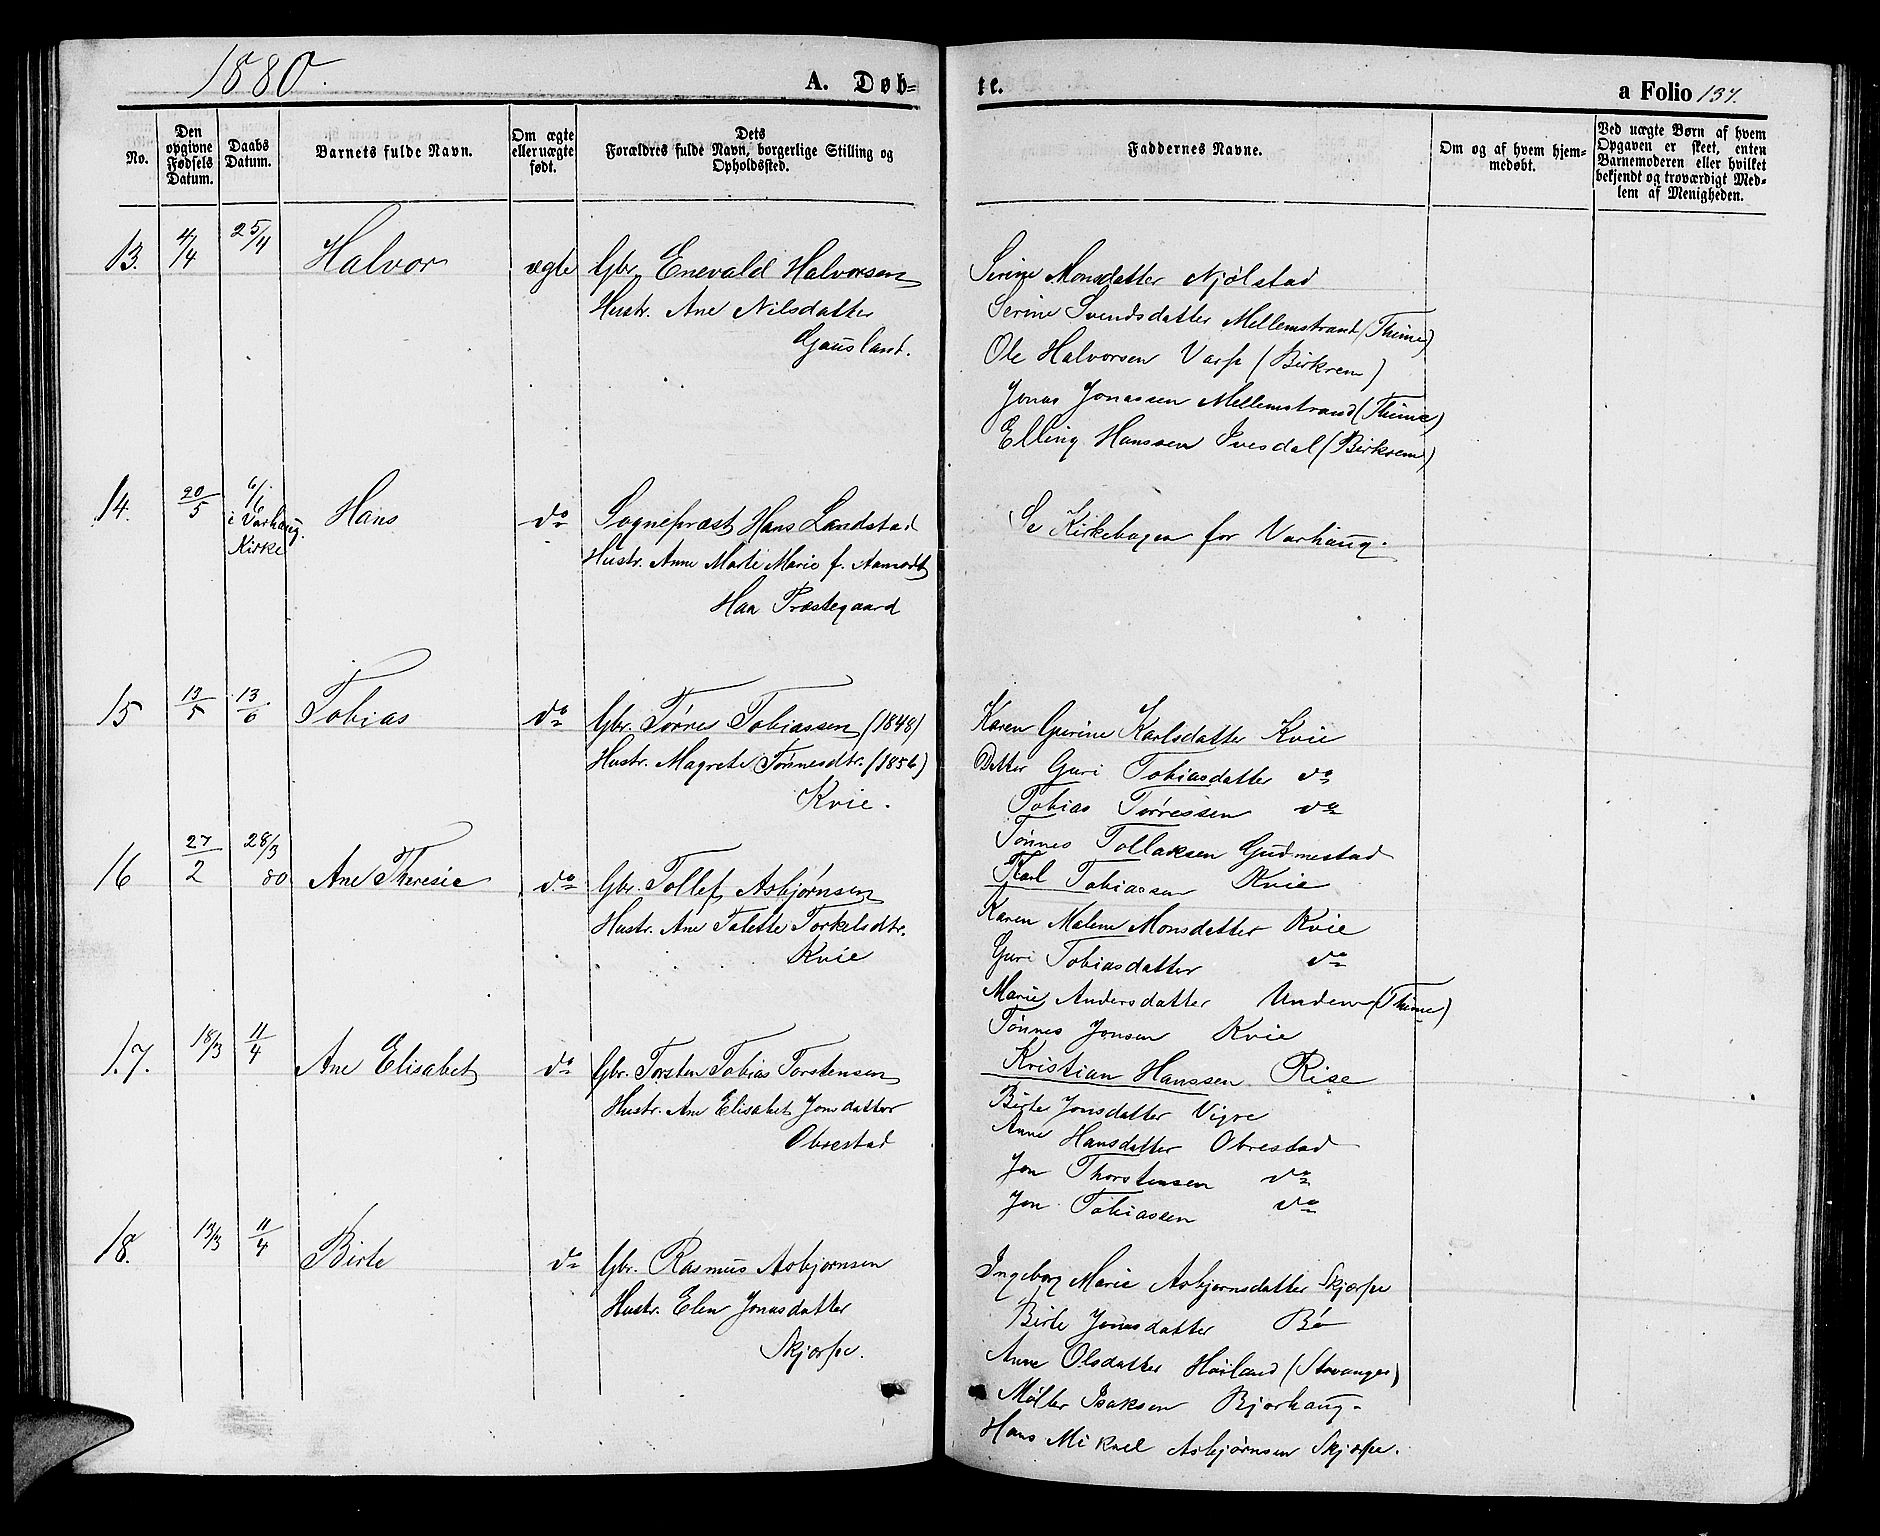 1880.
A. Døb-
te.
a Folio 137.
No.
Den opgivne Fødsels Datum.
Daabs Datum.
Barnets fulde Navn.
Om ægte eller uægte født.
Dets Forældres fulde Navn, borgerlige Stilling og Opholdssted.
Faddernes Navne.
Om og af hvem hjemmedøbt.
Ved uægte Børn af hvem Opgaven er skeet, enten Barnemoderen eller hvilket bekjendt og troværdigt Medlem af Menigheden.
13. 4/4 25/4 Halvor ægte Gbr. Enevald Halvorsen
Hustr. Ane Nilsdatter
Gausland.
Serine Monsdatter Njølstad
Serine Svendsdatter Mellemstrand (Thime)
Ole Halvorsen Varp (Birkrem)
Jonas Jonassen Mellemstrand (Thime)
Elling Hanssen Ivesdal (Birkrem)
14. 20/5 6/6 i Varhaug Kirke Hans do Sognepræst Hans Landstad
Hustr. Anne Marte Marie f. Aamodt
Haa Præstegaard
Se Kirkebogen for Varhaug.
15 13/5 13/6 Tobias do Gbr. Tørres Tobiassen (1848)
Hustr. Magrete Tønnesdtr. (1856)
Kvie.
Karen Gurine Karlsdatter Kvie
Datter Guri Tobiasdatter do
Tobias Tørressen do
Tønnes Tollaksen Gudmestad
Karl Tobiassen Kvie
16 27/2 28/3 80 Ane Theresie do Gbr. Tollef Asbjørnsen
Hustr. Ane Talette Torkelsdtr.
Kvie
Karen Malene Monsdatter Kvie
Guri Tobiasdatter do
Marie Andersdatter Undem (Thime)
Tønnes Jonsen Kvie
Kristian Hanssen Rise
17. 18/3 11/4 Ane Elisabet do Gbr. Torsten Tobias Torstensen
Hustr. Ane Elisabet Jonsdatter
Obrestad
Birte Jonsdatter Vigre
Anne Hansdatter Obrestad
Jon Thorstensen do
Jon Tobiassen do
18. 13/3 11/4 Birte do Gbr. Rasmus Asbjørnsen
Hustr. Elen Jonasdatter
Skjærpe.
Ingeborg Marie Asbjørnsdatter Skjærpe
Birte Jonasdatter Bø
Anne Olsdatter Høiland (Stavanger)
Møller Isaksen Bjorhaug
Hans Mikael Asbjørnsen Skjærpe.